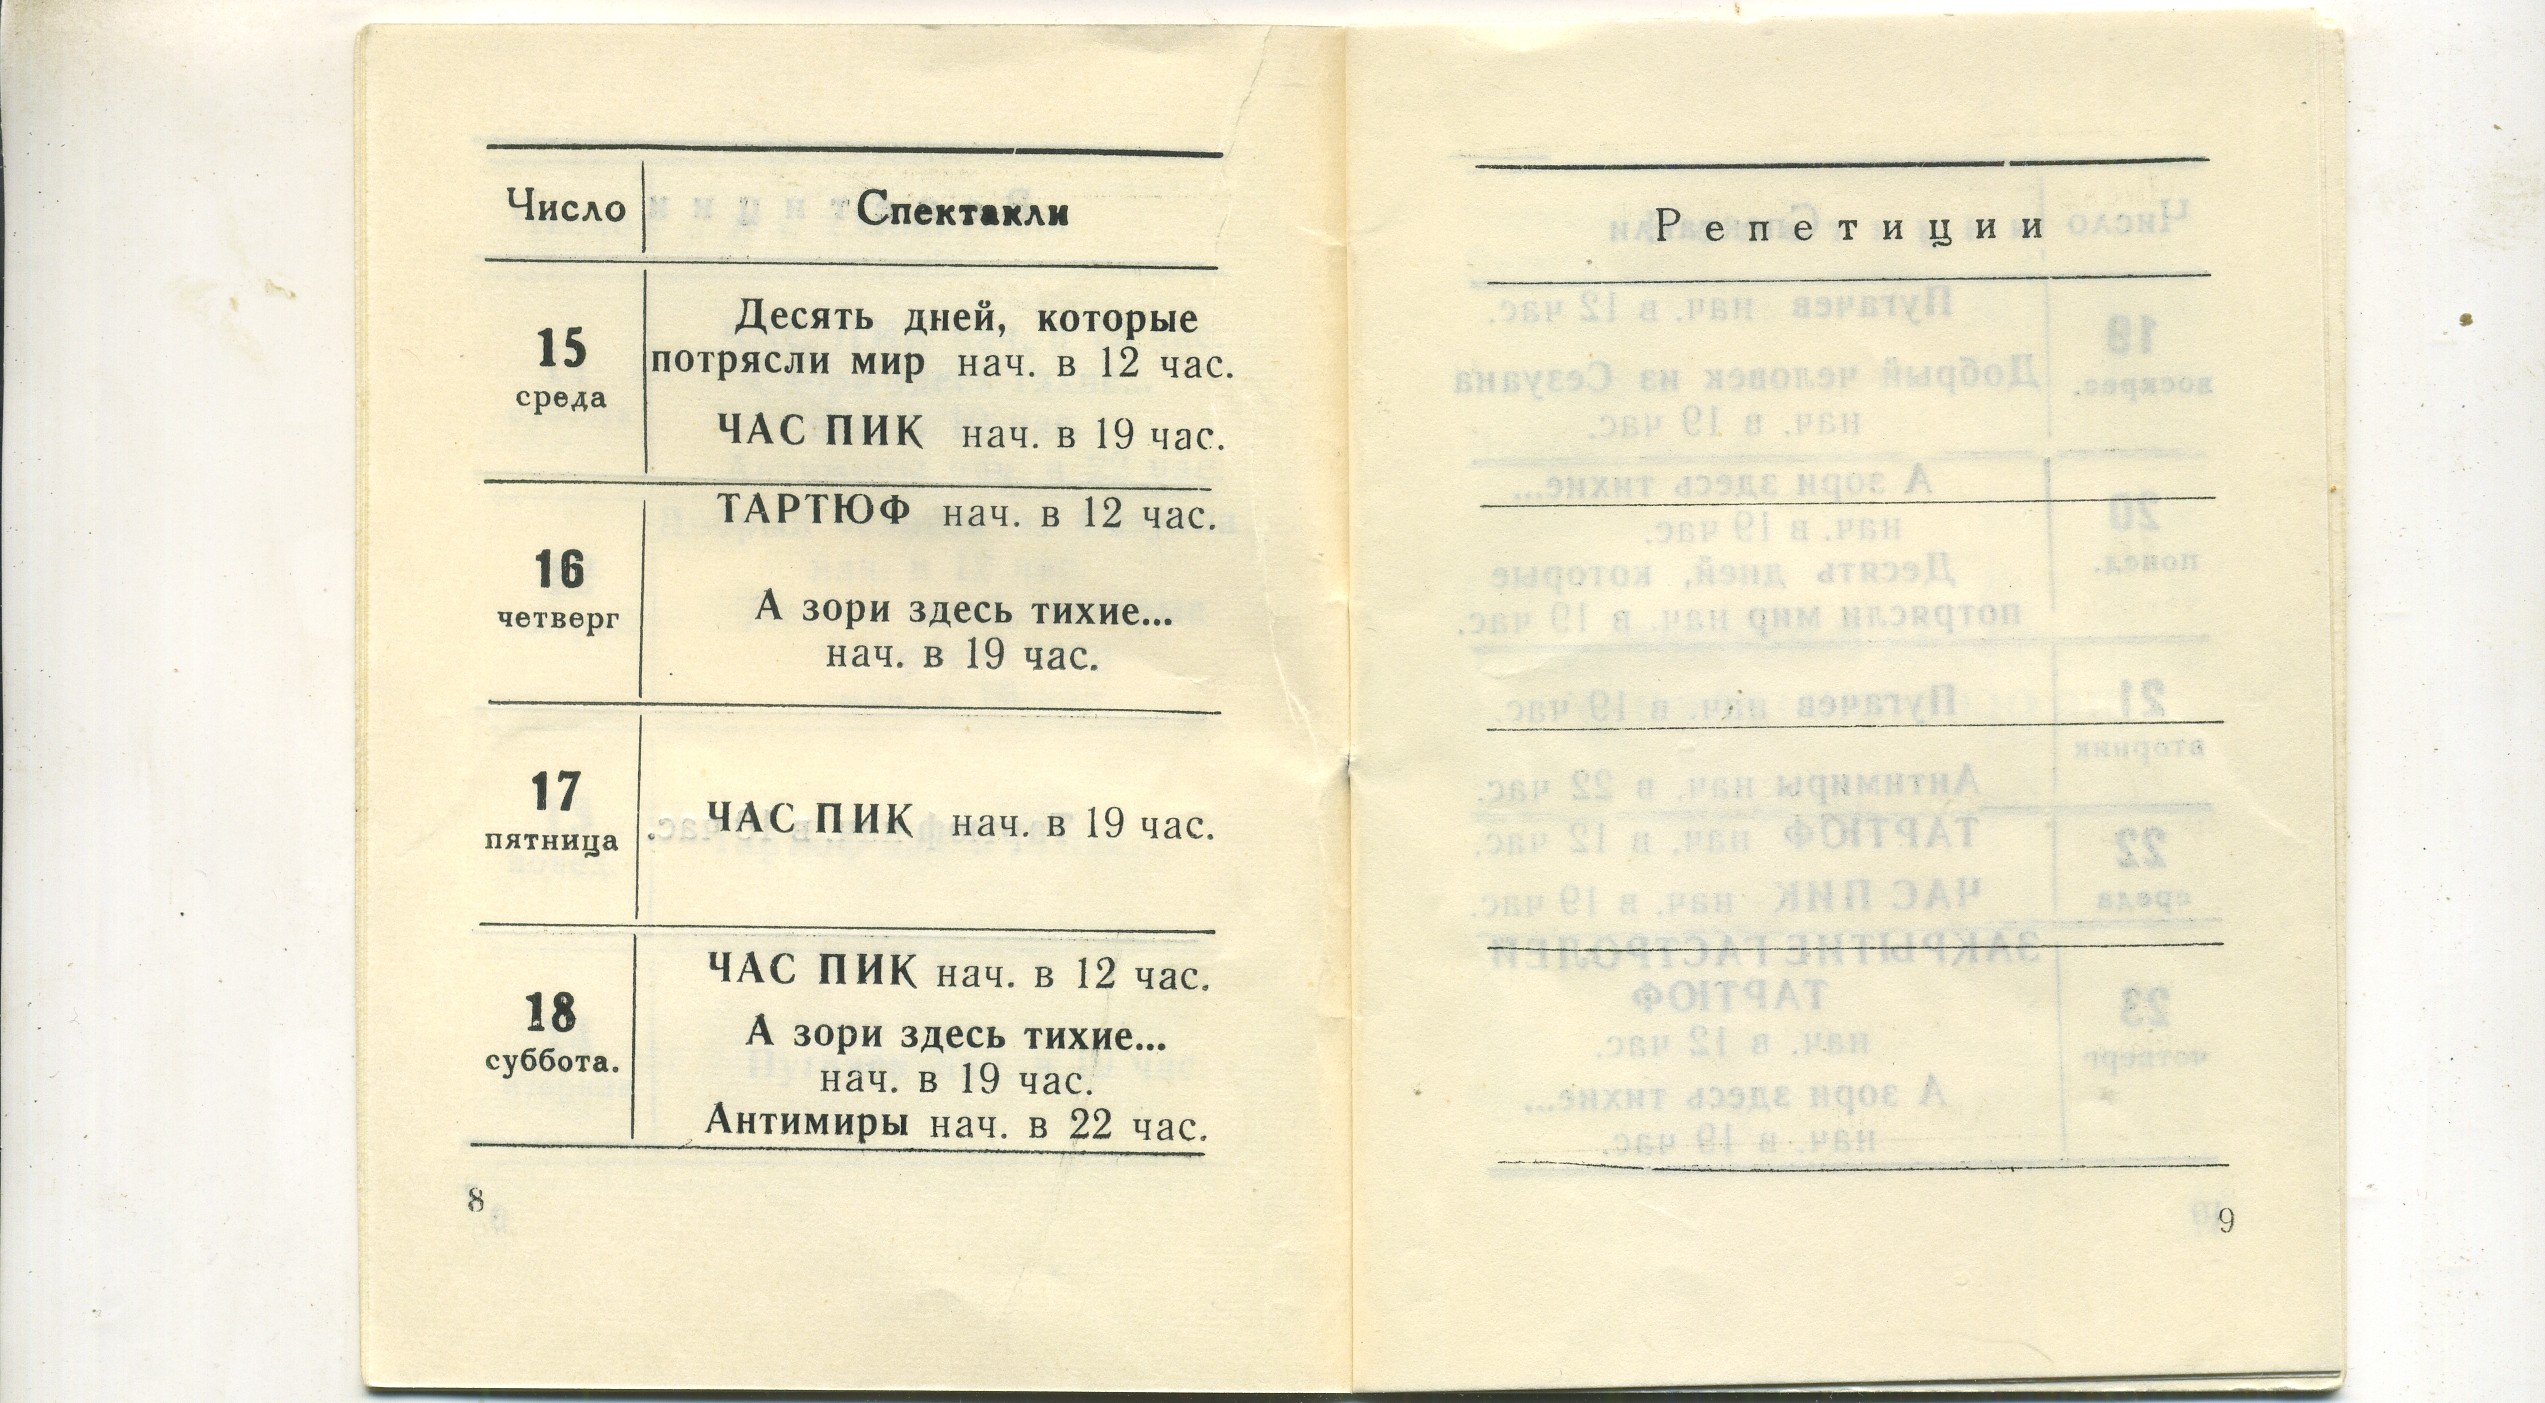 Число Спектакли
15
среда
Десять дней, которые
потрясли мир нач. в 12 час.
ЧАС ПИК нач. в 19 час.
16
четверг
ТАРТЮФ нач. в 12 час.
А зори здесь тихие...
нач. в 19 час.
17
пятница
ЧАС ПИК нач. в 19 час.
18
суббота.
ЧАС ПИК нач. в 12 час.
А зори здесь тихие...
нач. в 19 час.
Антимиры нач. в 22 час.
8
Репетиции
9